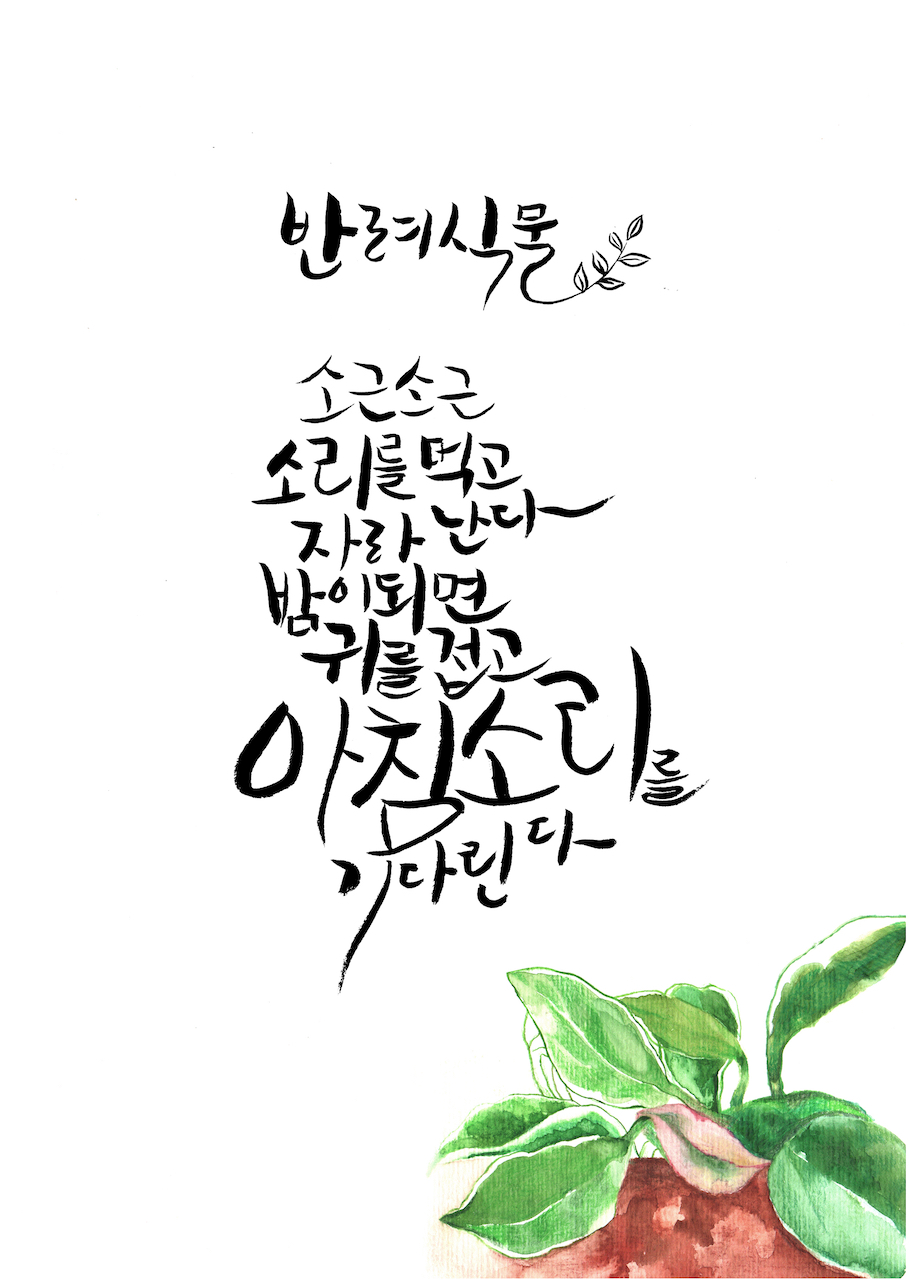 반려식물
소근소근
소리를 먹고
자라 난다
밤이되면
귀를 접고
아침소리를
기다린다